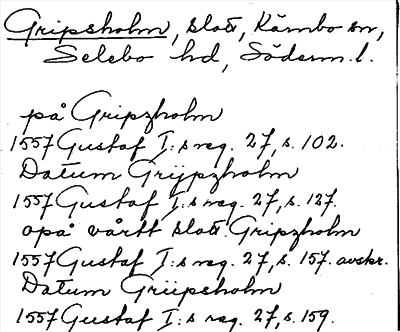 Gripsholm, slott, Kärnbo sn,
Selebo hd, Söderm. l.
på Gripzholm
1557 Gustaf I:s reg. 27, s. 102.
Datum Grijpzholm
1557 Gustaf I:s reg. 27, s. 127.
opå vårtt slott Gripzholm
1557 Gustaf I:s reg. 27, s. 157. avskr.
Datum Griipsholm
1557 Gustaf I:s reg. 27, s. 159.